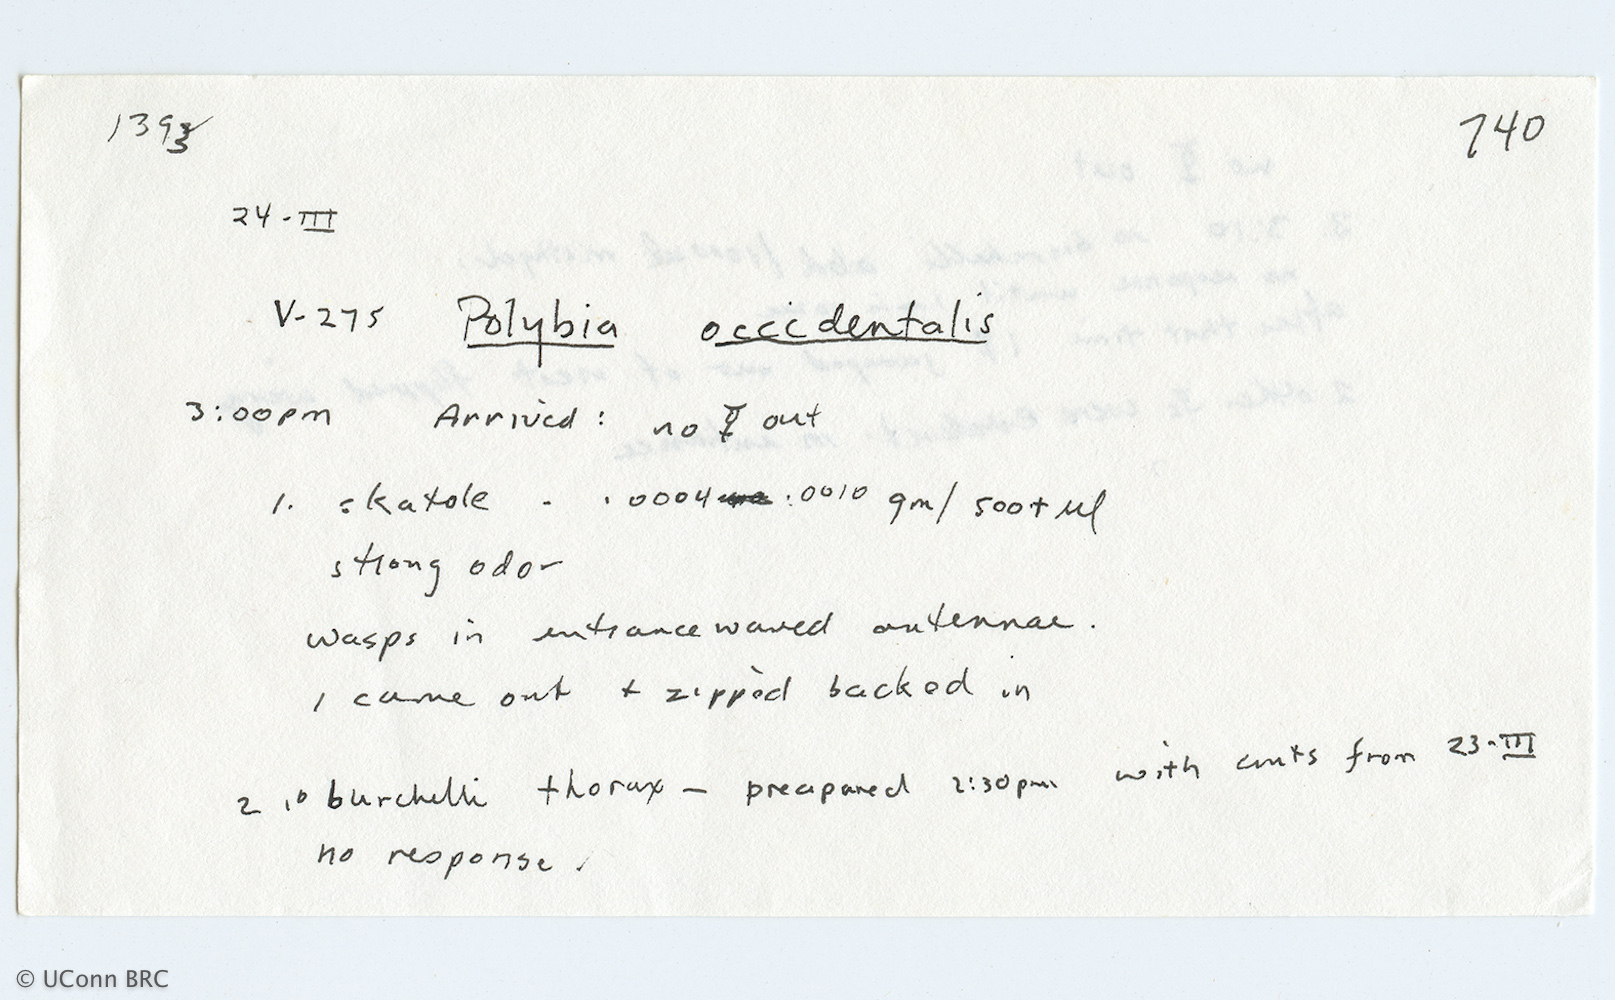 1393
740
24-III
V-275 Polybia occcidentalis
3:00pm Arrived: no ☿ out
1. skatole - .0004 .0010 gm/500+ul
strong odor
wasps in entrance waved antennae.
1 came out + zipped backed in
2 10 burchelli thorax - preapared 2:30pm with ants from 23-III
no response.
© UConn BRC